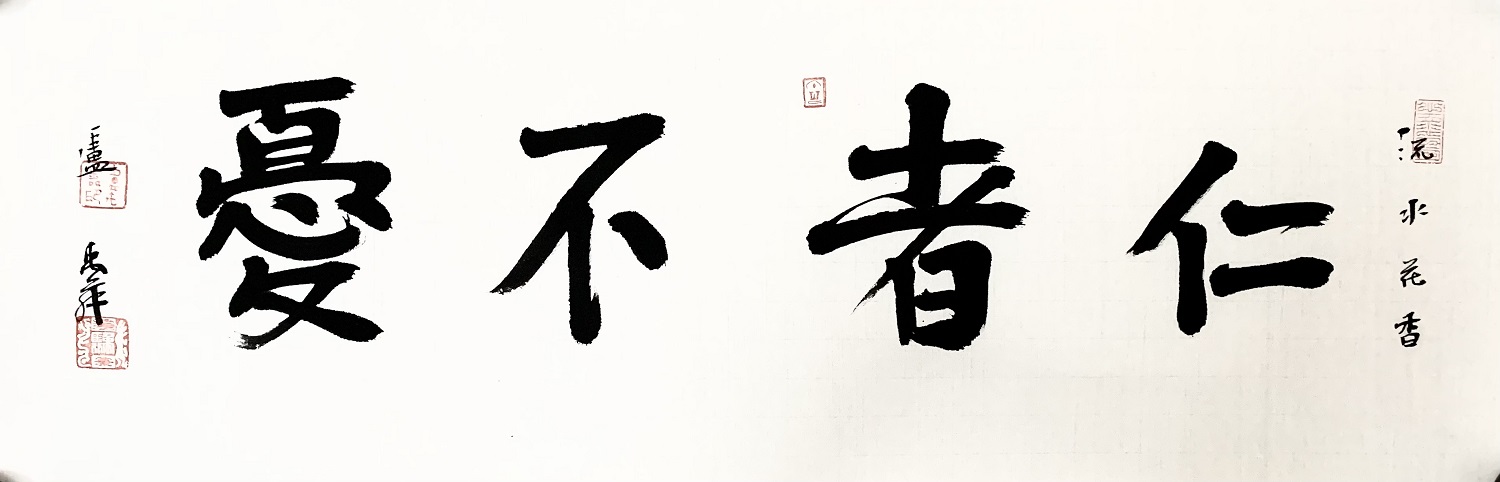 流水花香
仁者不憂
盧